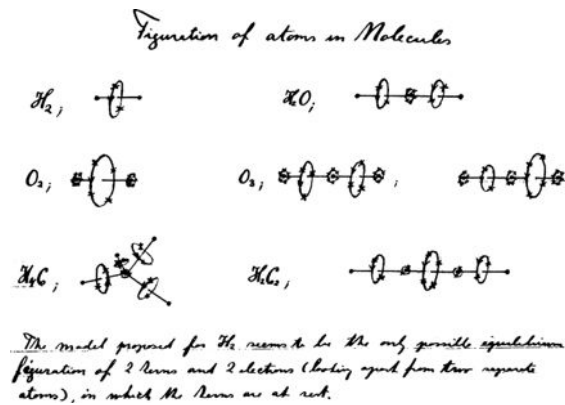 Figuration of atoms in Molecules
H₂; H₂O;
O₂; O₃; ;
H₄C; H₂C₂;
The model proposed for H₂ seems to be the only possible equilibrium
figuration of 2 kerns and 2 electrons (looking apart from two seperate
atoms), in which the kerns are at rest.